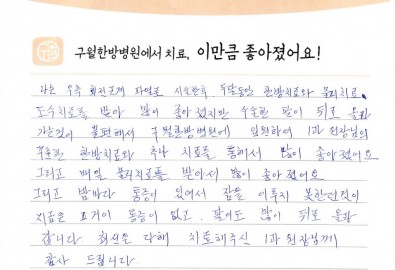 구월한방병원에서 치료, 이만큼 좋아졌어요!
나는 우측 회전근개 파열로 시술한후 두달동안 한방치료와 물리치료
도수치료를 받아 많이 좋아졌지만 수술한 팔이 뒤로 올라
가는것이 불편해서 구월한방병원에 입원하여 1과 원장님의
꾸준한 한방치료와 추나 치료를 통해서 많이 좋아졌어요
그리고 매일 물리치료를 받아서 많이 좋아졌어요.
그리고 밤마다 통증이 있어서 잠을 이루지 못한던것이
지금은 통증이 없고. 팔이도 많이 뒤로 올라
갑니다 최선을 다해 치료해주신 1과 원장님께
감사 드립니다